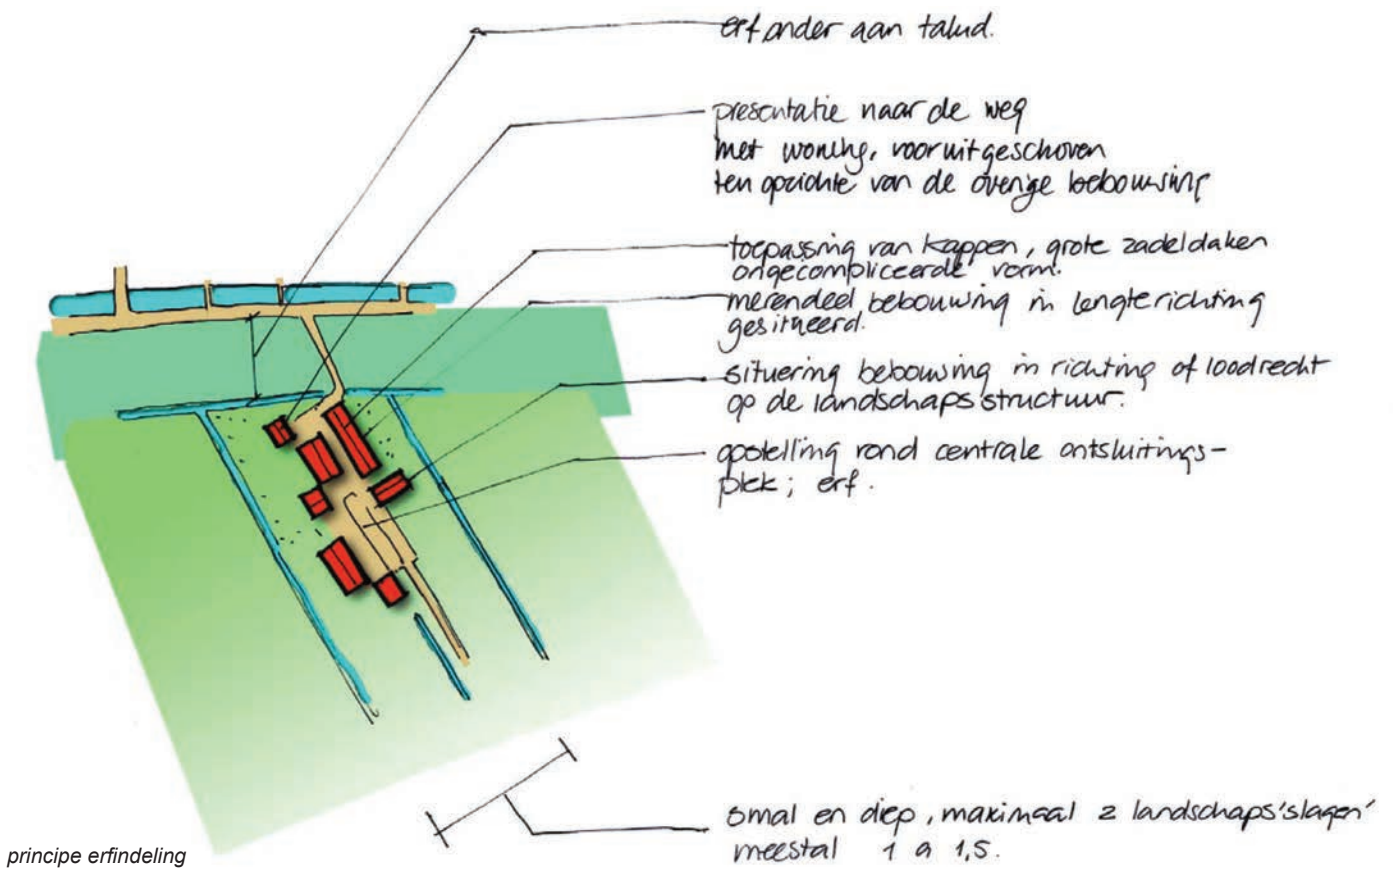 erf onder aan talud.
presentatie naar de weg
met woning, vooruitgeschoven
ten opzichte van de overige bebouwing
toepassing van kappen, grote zadeldaken
ongecompliceerde vorm.
merendeel bebouwing in lengterichting
gesitueerd.
situering bebouwing in richting of loodrecht
op de landschapsstructuur.
opstelling rond centrale ontsluitings-
plek; erf.
smal en diep, maximaal 2 landschaps'slagen'
meestal 1 a 1,5.
principe erfindeling